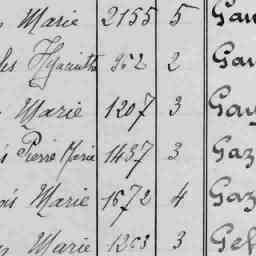 Marie 2155 5 Gau
les Hyacinthe 952 2 Gau
Marie 1207 3 Gau
is Pierre Marie 1437 3 Gaz
ois Marie 1672 4 Gaz
Marie 1203 3 Gef